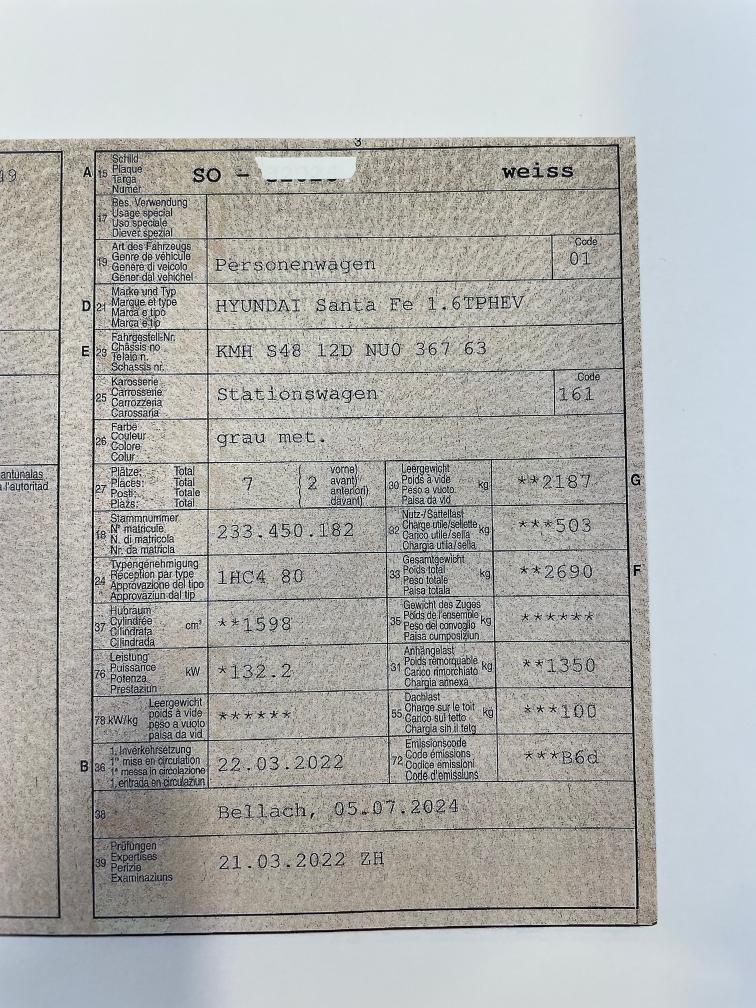 3
49
A 15 Schild
Plaque
Targa
Numer
SO -
weiss
17 Bes. Verwendung
Usage spécial
Uso speciale
Diever spezial
19 Art des Fahrzeugs
Genre de véhicule
Genere di veicolo
Gener dal vehichel
Personenwagen
Code
01
D 21 Marke und Typ
Marque et type
Marca e tipo
Marca e tip
HYUNDAI Santa Fe 1.6TPHEV
E 23 Fahrgestell-Nr.
Châssis no
Telaio n.
Schassis nr.
KMH S48 12D NU0 367 63
25 Karosserie
Carrosserie
Carrozzeria
Carossaria
Stationswagen
Code
161
26 Farbe
Couleur
Colore
Colur
grau met.
27 Plätze: Total
Places: Total
Posti: Totale
Plazs: Total
7
( 2 vorne)
avant)
anteriori)
davant)
30 Leergewicht
Poids à vide
Peso a vuoto
Paisa da vid
kg
**2187
G
antunalas
l'autoritad
18 Stammnummer
N° matricule
N. di matricola
Nr. da matricla
233.450.182
32 Nutz-/Sattellast
Charge utile/sellette
Carico utile/sella
Chargia utila/sella
kg
***503
24 Typengenehmigung
Réception par type
Approvazione del tipo
Approvaziun dal tip
1HC4 80
33 Gesamtgewicht
Poids total
Peso totale
Paisa totala
kg
**2690
F
37 Hubraum
Cylindrée
Cilindrata
Cilindrada
cm³
**1598
35 Gewicht des Zuges
Poids de l'ensemble
Peso del convoglio
Paisa cumposiziun
kg
******
76 Leistung
Puissance
Potenza
Prestaziun
kW
*132.2
31 Anhängelast
Poids remorquable
Carico rimorchiato
Chargia annexa
kg
**1350
78 kW/kg
Leergewicht
poids à vide
peso a vuoto
paisa da vid
******
55 Dachlast
Charge sur le toit
Carico sul tetto
Chargia sin il tetg
kg
***100
B 36 1. Inverkehrsetzung
1re mise en circulation
1a messa in circolazione
1. entrada en circulaziun
22.03.2022
72 Emissionscode
Code émissions
Codice emissioni
Code d'emissiuns
***B6d
38
Bellach, 05.07.2024
39 Prüfungen
Expertises
Perizie
Examinaziuns
21.03.2022 ZH